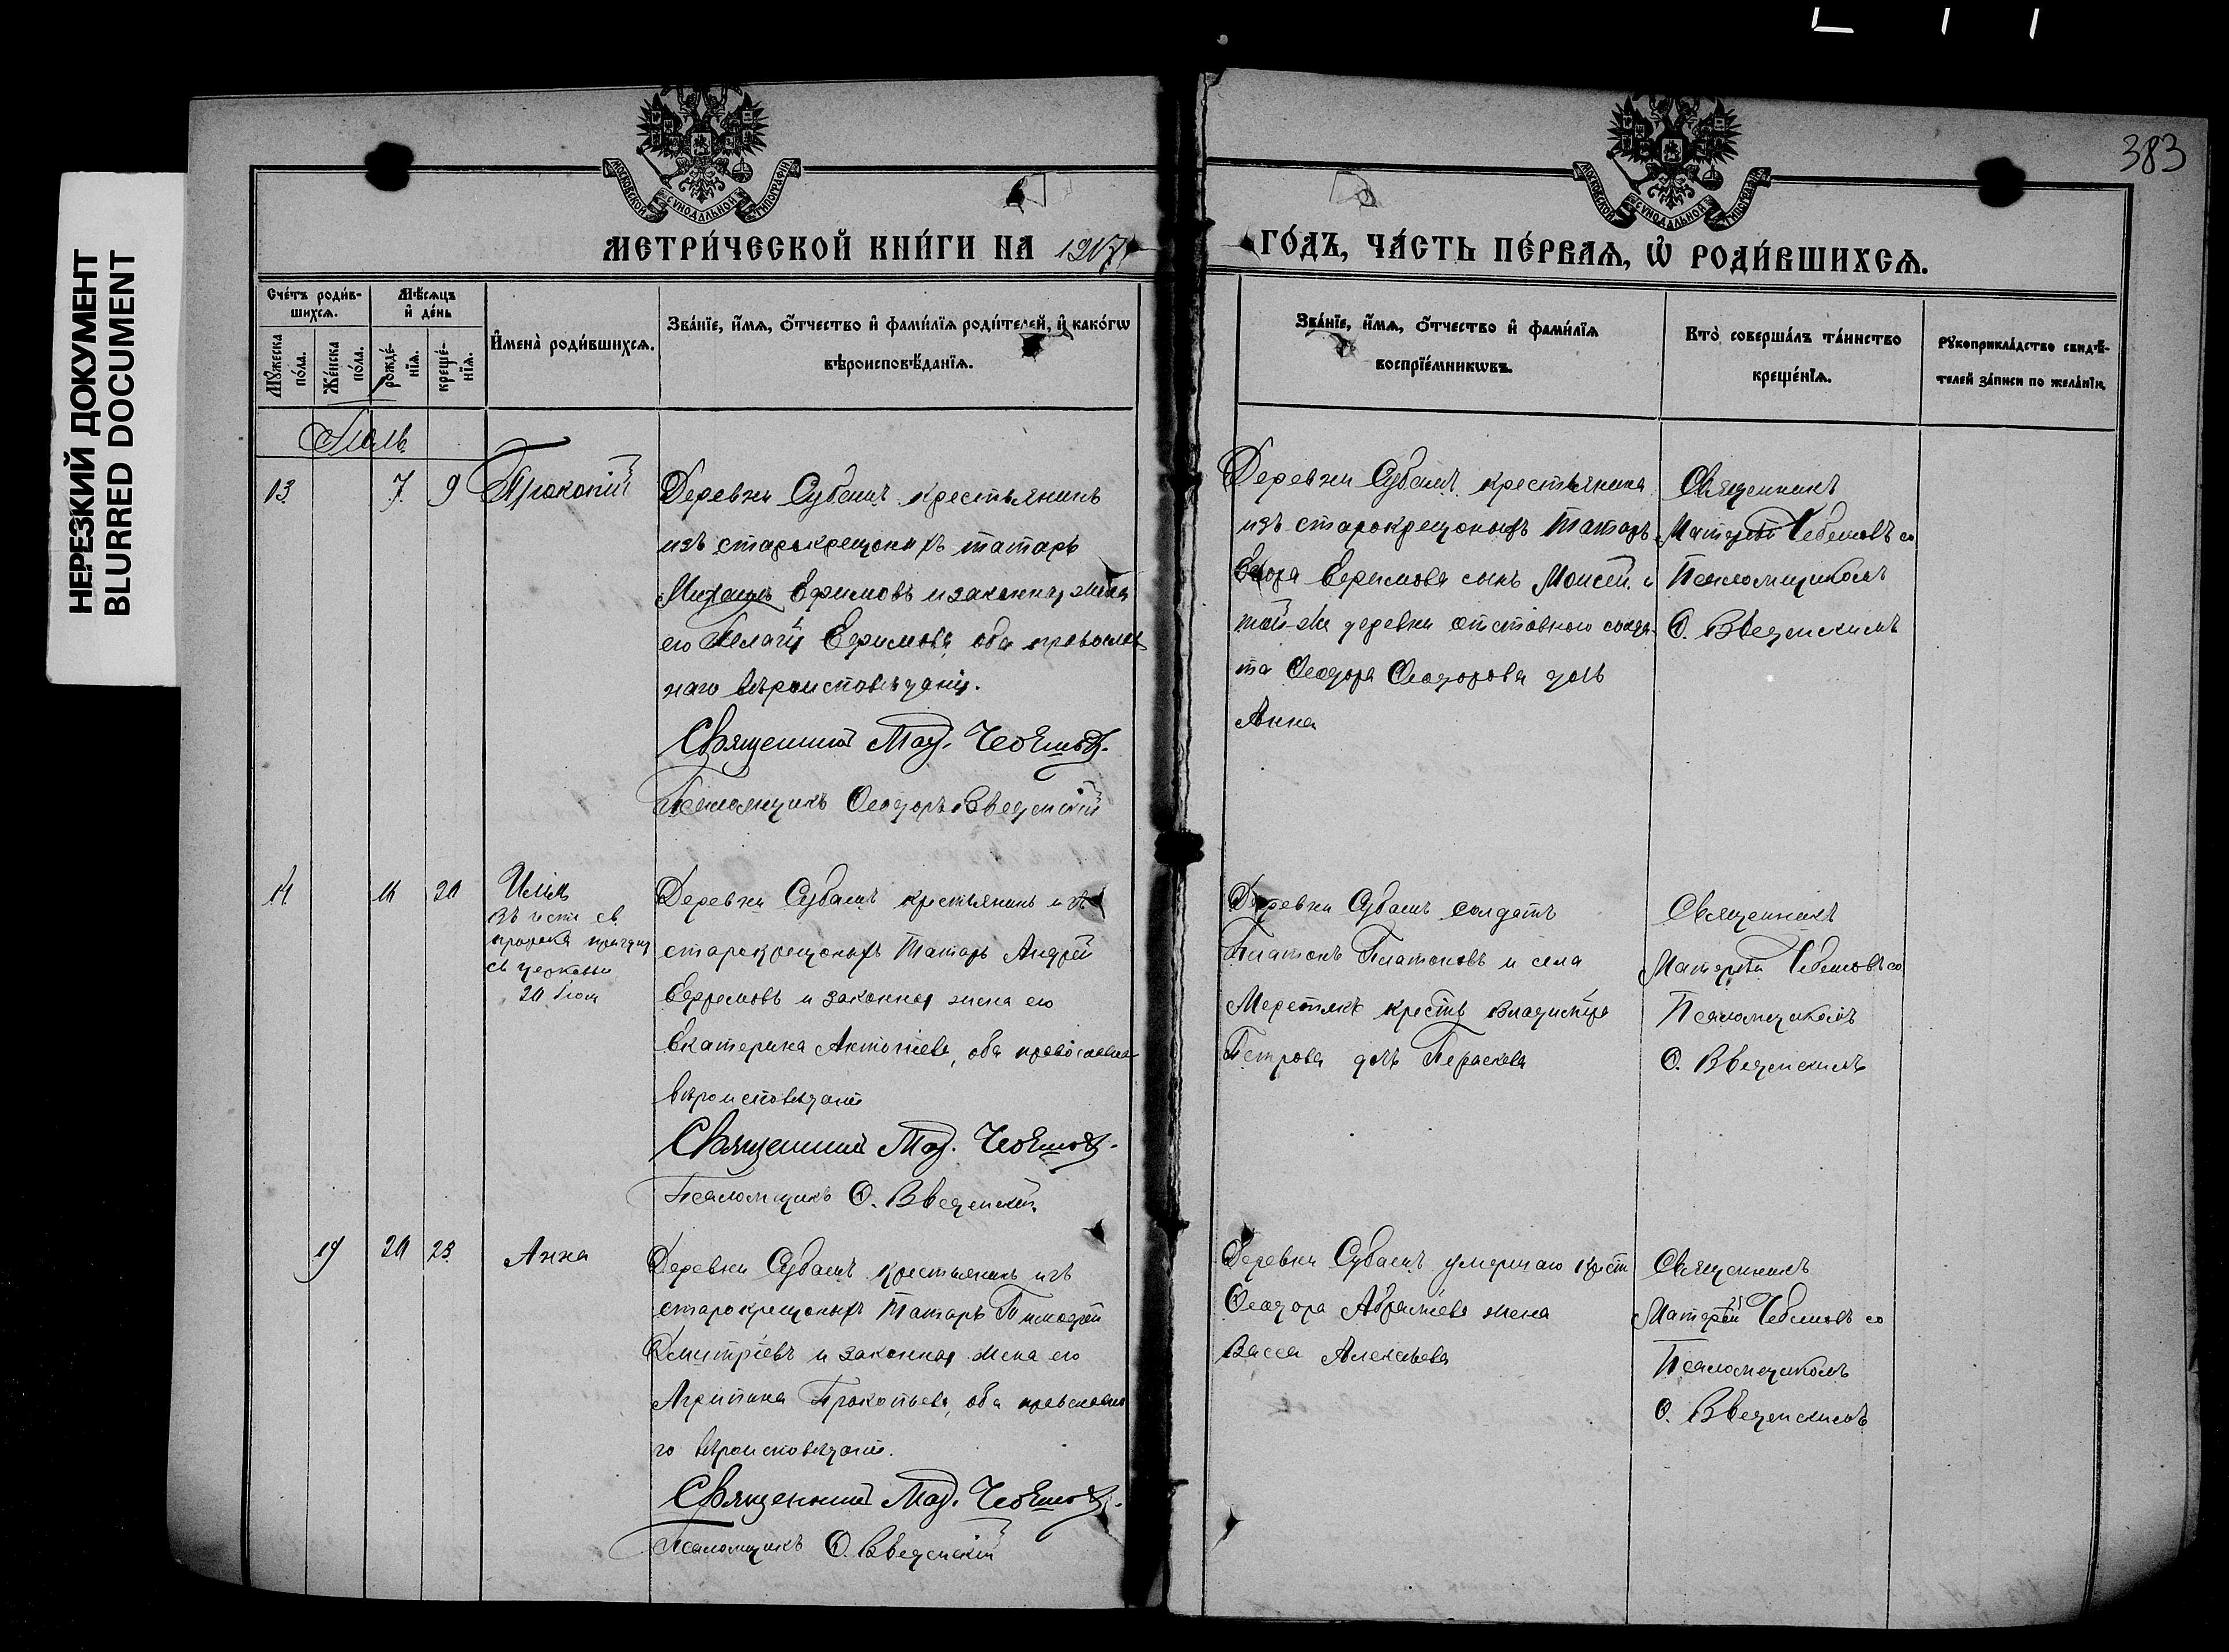 НЕРЕЗКИЙ ДОКУМЕНТ
BLURRED DOCUMENT
383
МОСКОВСКОЙ СѴНОДАЛЬНОЙ ТИПОГРАФІИ
МОСКОВСКОЙ СѴНОДАЛЬНОЙ ТИПОГРАФІИ
МЕТРИ́ЧЕСКОЙ КНИ́ГИ НА 1917
ГО́ДЪ, ЧА́СТЬ ПЕ́РВАѦ, Ѡ҆ РОДИ́ВШИХСѦ.
Сче́тъ роди́в-
шихсѧ.
Мѣ́сѧцъ
и҆ де́нь
Мꙋ́жеска
по́ла.
Же́нска
по́ла.
рожде́-
нїѧ.
креще́-
нїѧ.
И҆мена̀ роди́вшихсѧ.
Зва́нїе, и҆́мѧ, ѻ҆́тчество и҆ фами́лїѧ роди́телей, и҆ како́гѡ
вѣроисповѣ́данїѧ.
Зва́нїе, и҆́мѧ, ѻ҆́тчество и҆ фами́лїѧ
воспрїе́мникѡвъ.
Кто̀ соверша́лъ та́инство
креще́нїѧ.
Рꙋкоприкла́дство свидѣ́-
телей за́писи по жела́нїю.
Іюль
13
7
9
Прокопій
Деревни Субашъ крестьянинъ
изъ старокрещоныхъ татаръ
Михаилъ Ефимовъ и законная жена
его Пелагія Ефимова, оба православ
наго вѣроисповѣданія.
Священникъ Мат. Чебешовъ.
Псаломщикъ Ѳеодоръ Введенскій
Деревни Субашъ крестьянина
изъ старокрещоныхъ Татаръ
Ефимова сынъ Моисей и
той-же деревни отставного солда
та Ѳеодора Ѳеодорова дочь
Анна
Священникъ
Матѳей Чебешовъ со
Псаломщикомъ
Ѳ. Введенскимъ
14
16
20
Илія
въ честь св
пророка
св церковью
20 Іюл
Деревни Субашъ крестьянинъ изъ
старокрещоныхъ Татаръ Андрей
Ефремовъ и законная жена его
Екатерина Антоніева, оба православна
вѣроисповѣданія
Священникъ Мат. Чебешовъ.
Псаломщикъ Ѳ. Введенскій
Деревни Субашъ солдатъ
Платонъ Платоновъ и села
крест Владиміра
Петрова дочь Параскева
Священникъ
Матѳей Чебешовъ со
Псаломщикомъ
Ѳ. Введенскимъ
19
20
23
Анна
Деревни Субашъ крестьянинъ изъ
старокрещоныхъ Татаръ Тимоѳей
Димитріевъ и законная жена его
Агрипина Прокопьева, оба православна
го вѣроисповѣданія.
Священникъ Мат. Чебешовъ.
Псаломщикъ Ѳ. Введенскій
Деревни Субашъ умершаго крест
Ѳеодора Абраміева жена
Васса Алексѣева
Священникъ
Матѳей Чебешовъ со
Псаломщикомъ
Ѳ. Введенскимъ